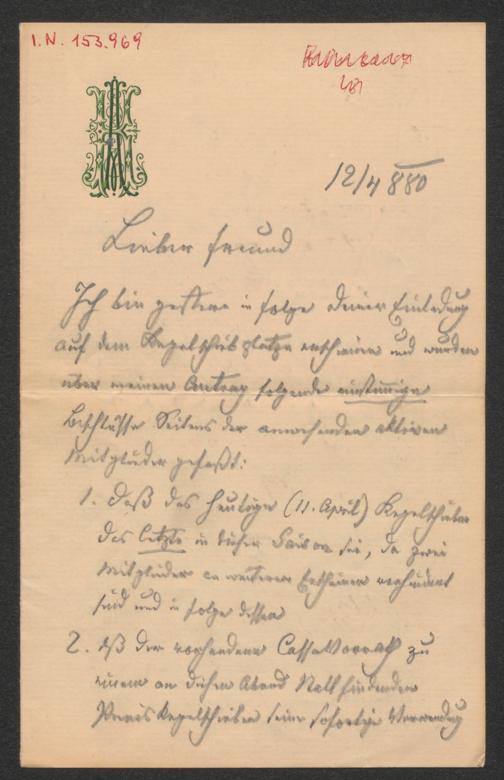 I.N. 153.969
12/4 880
Lieber Freund
Ich bin gestern in Folge Deiner Einladung
auf dem Kegelschubplatze erschienen und wurden
über meinen Antrag folgende einstimmige
Beschlüsse Seitens der anwesenden aktiven
Mitglieder gefaßt:
1. daß das heutige (11. April) Kegelschieben
das letzte in dieser Saison sei, da zwei
Mitglieder an weiterem Erscheinen verhindert
sind und in Folge dessen
2. daß der vorhandene Cassavorrath zu
einem an diesem Abend stattfindenden
Preiskegelschieben seine sofortige Verwendung